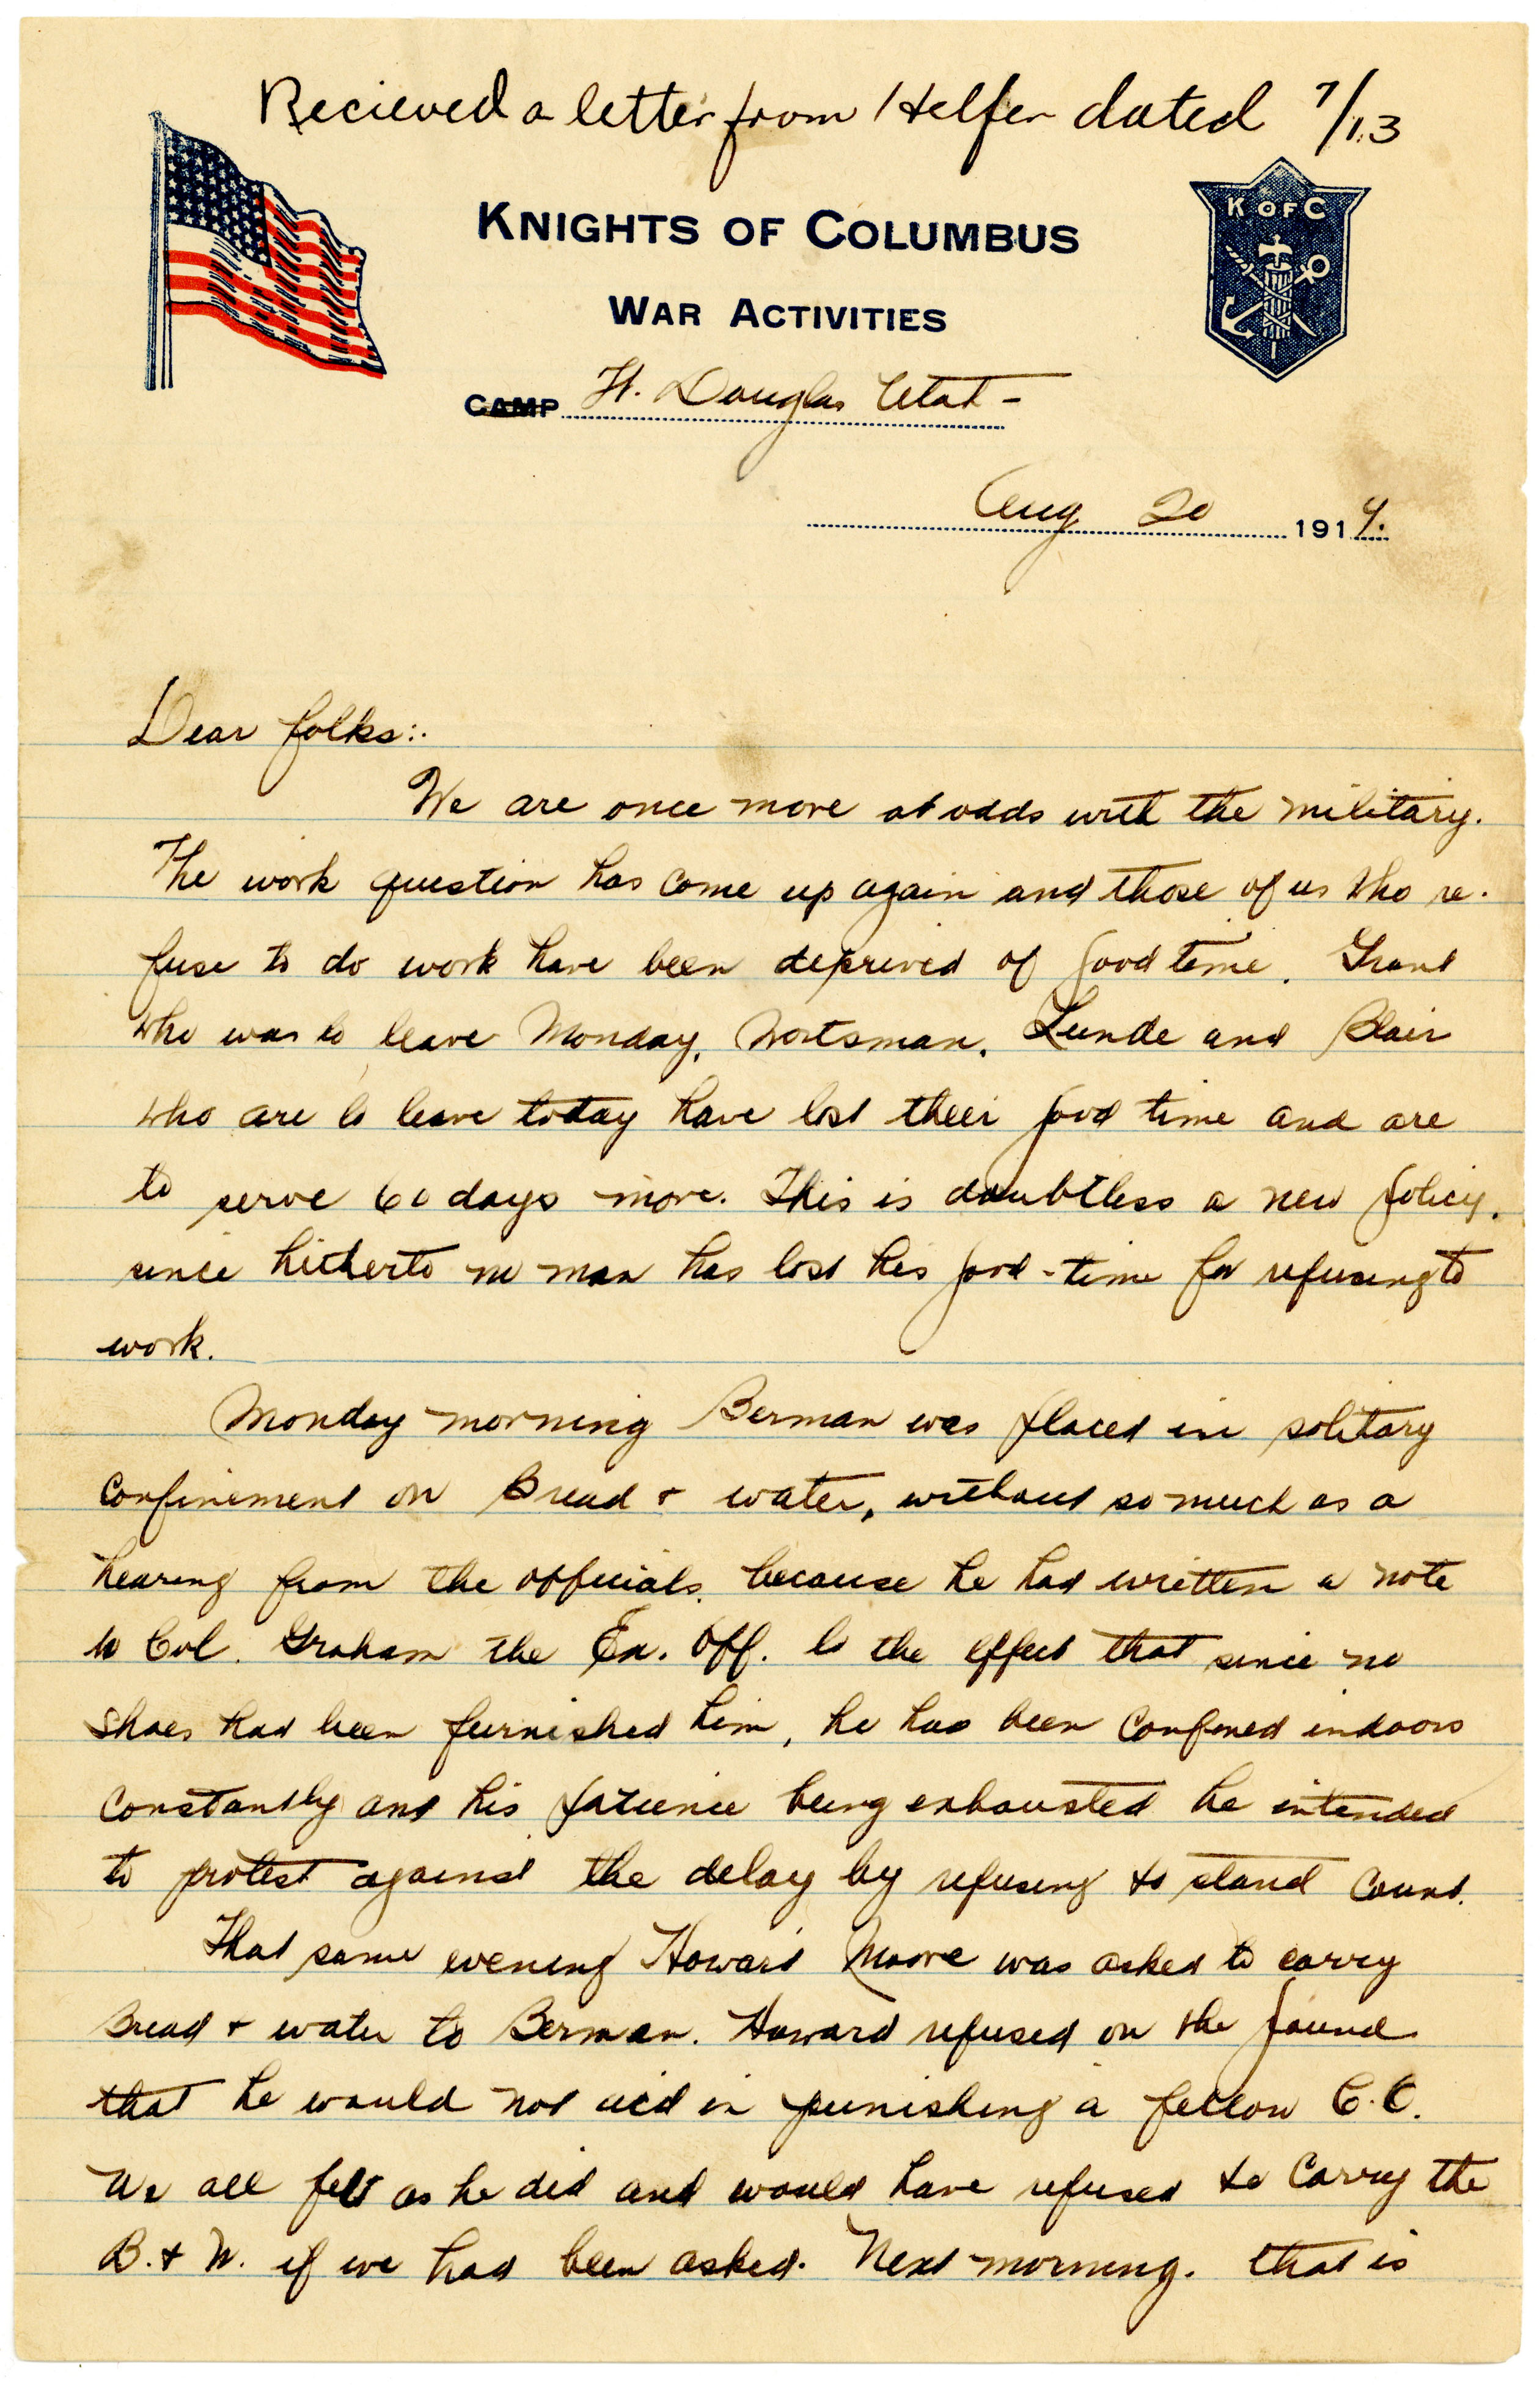 Recieved a letter from Helfer dated 7/13
K OF C
KNIGHTS OF COLUMBUS
WAR ACTIVITIES
CAMP Ft. Douglas Utah -
Aug 20 1919.
Dear folks:.
We are once more at odds with the military.
The work question has come up again and those of us who re-
fuse to do work have been deprived of good time. Grant
who was to leave Monday, Wortsman, Lunde and Blair
who are to leave today have lost their good time and are
to serve 60 days more. This is doubtless a new policy,
since hitherto no man has lost his good-time for refusing to
work.
Monday morning Berman was placed in solitary
confinement on Bread + water, without so much as a
hearing from the officials, because he had written a note
to Col. Graham the Ex. Off. to the effect that since no
shoes had been furnished him, he has been confined indoors
constantly and his patience being exhausted he intended
to protest against the delay by refusing to stand count.
That same evening Howard Moore was asked to carry
Bread + water to Berman. Howard refused on the ground
that he would not aid in punishing a fellow C.O.
We all felt as he did and would have refused to carry the
B. + W. if we had been asked. Next morning. that is